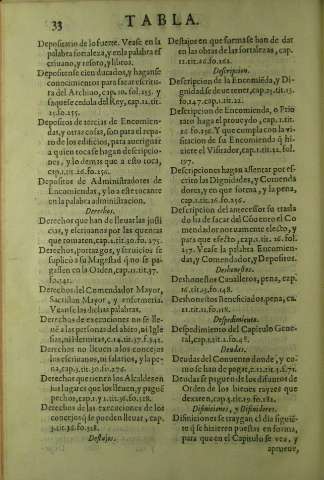 33
TABLA.
Depositario de lo fuerte. Vease en la
palabra fortaleza, y en la palabra es
criuano, y tesoro, y libros.
Depositense cien ducados, y haganse
conocimientos para sacar escritu-
ra del Archiuo, cap. 10. fol. 255. y
saquese cedula del Rey, cap. 12. tit.
25. fo. 255.
Depositos de tercias de Encomien-
das, y otras cosas, son para el repa-
ro de los edificios, para aueriguar
a quien tocase hagan descripcio-
nes, y lo demas que a esto toca,
cap. 1. tit. 26. fo. 256.
Depositos de Administradores de
Encomiendas, y lo a este tocante
en la palabra administracion.
Derechos.
Derechos que han de lleuar las justi
cias, y escriuanos por las quentas
que tomaren, cap. 1. tit. 30. fo. 275.
Derechos, portazgos, y seruicios se
suplico a su Magestad q̃ no se pa-
gassen en la Orden, cap. 11. tit. 37.
fo. 341.
Derechos del Comendador Mayor,
Sacristan Mayor, y enfermeria.
Veanse las dichas palabras.
Derechos de execuciones no se lle-
uẽ a las personas del abito, ni Igle
sias, ni Hermitas, c. 14. tit. 37. f. 341.
Derechos no lleuen a los concejos
los escriuanos, ni salarios, y la pe-
na, cap. 3. tit. 30. fo. 276.
Derechos que tienen los Alcaldes en
sus lugares que los lleuen, y pague
pechos, cap. 1. y 2. tit. 36. fo. 328.
Derechos de las execuciones de los
concejos, se pueden lleuar, cap.
3. tit. 36. fo. 328.
Destajos.
Destajos en que forma se han de dar
en las obras de las fortalezas, cap.
12. tit. 26. fo. 262.
Descripcion.
Descripcion de la Encomiẽda, y Di-
gnidad se deue tener, cap. 5. tit. 13.
fo. 147. cap. 1. tit. 22.
Descripcion de Encomienda, o Prio
rato haga el proueydo, cap. 1. tit.
26. fo. 256. Y que cumpla con la vi-
sitacion de su Encomienda q̃ hi-
ziere el Visitador, cap. 1. tit. 22. fol.
197.
Descripciones hagan assentar por es-
crito las Dignidades, y Comenda
dores, y en que forma, y la pena,
cap. 1. tit. 26. fo. 256.
Descripcion del antecessor su trasla
do ha de sacar del Cõuento el Co
mendador nueuamente electo, y
para que efecto, cap. 1. tit. 26. fol.
217. Vease la palabra Encomien-
das, y Comendador, y Depositos.
Deshonestos.
Deshonestos Caualleros, pena, cap.
16. tit. 13. fo. 148.
Deshonestos Beneficiados, pena, ca.
12. tit. 11. fo. 118.
Despedimiento.
Despedimiento del Capitulo Gene-
ral, cap. 1. tit. 2. fo. 48.
Deudas.
Deudas del Conuento donde, y co-
mo se han de pagar, c. 1. tit. 2. f. 171.
Deudas se paguen de los difuntos de
Orden de los bienes rayzes que
dexaren, cap. 3. tit. 19. fo. 182.
Difiniciones, y Difinidores.
Difiniciones se traygan el dia siguiẽ-
te q̃ se hizieren puestas en forma,
para que en el Capitulo se vea, y
aprueue,